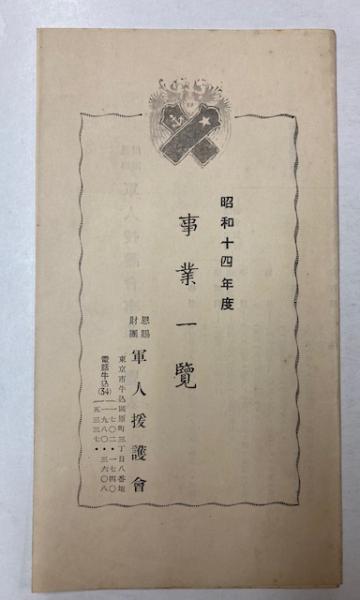 昭和十四年度
事業一覧
恩賜
財團
軍人援護會
東京市牛込區原町三丁目八番地
電話牛込(34)
一七〇二・一七四〇
一九八〇・三六〇八
五三三七・